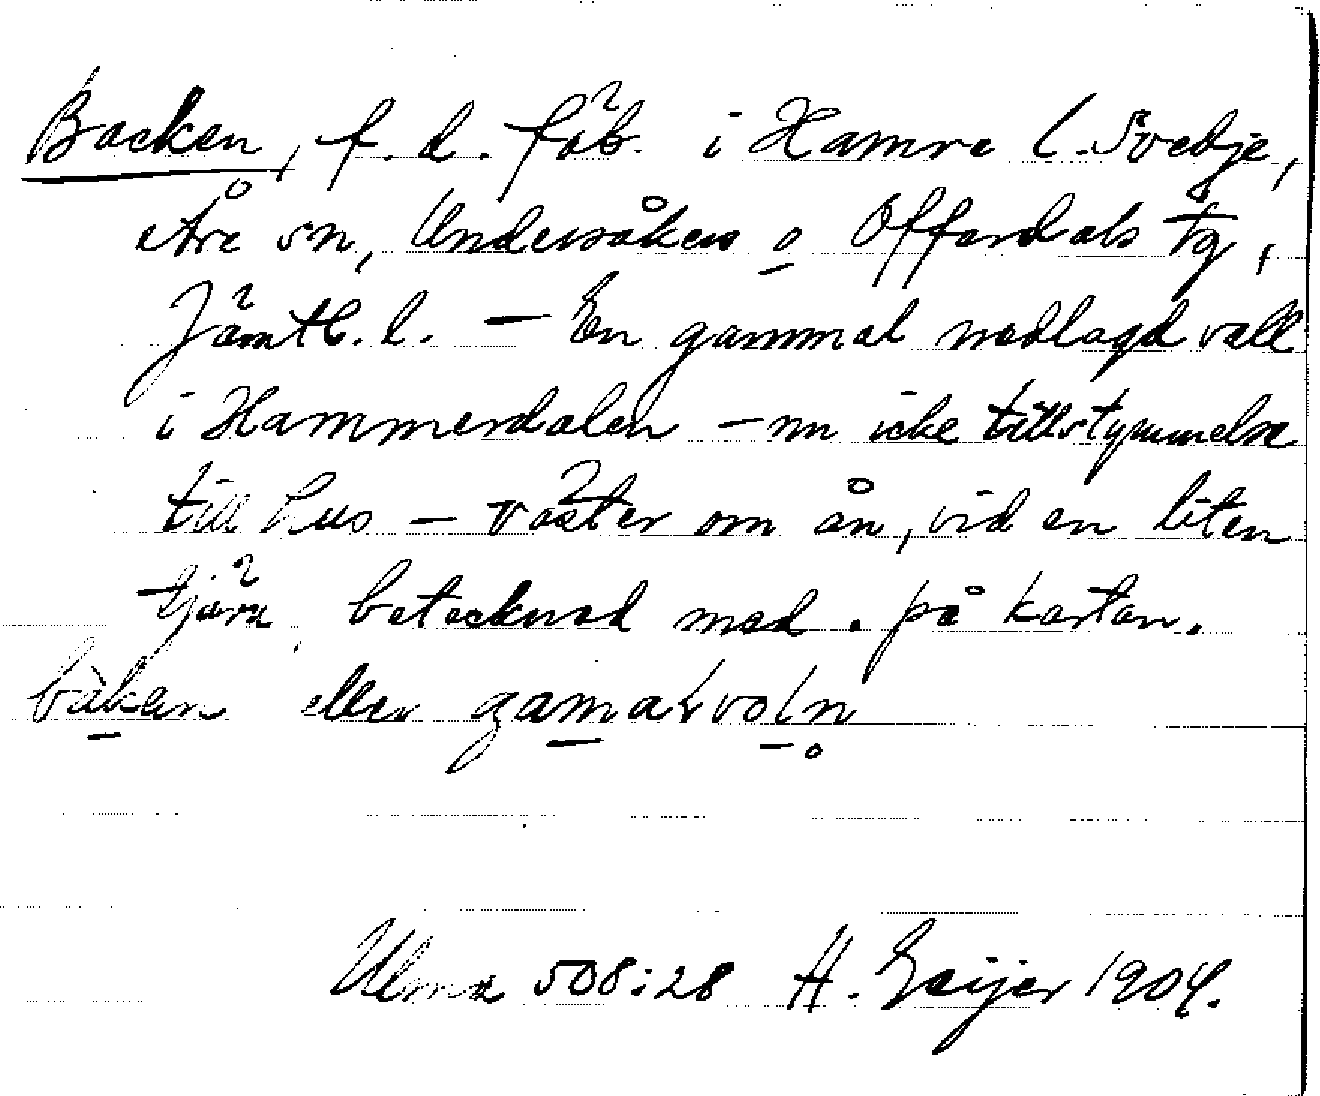 Backen, f. d. fäb. i Hamre l. Svedje,
Åre sn, Undersåkers o Offerdals tg,
Jämtl. l. — En gammal nedlagd vall
i Hammerdalen — nu icke tillstymmelse
till hus — väster om ån, vid en liten
tjärn, betecknad med . på kartan.
bàken eller gamaḷvoln
Ulma 508:28 H. Geijer 1904.